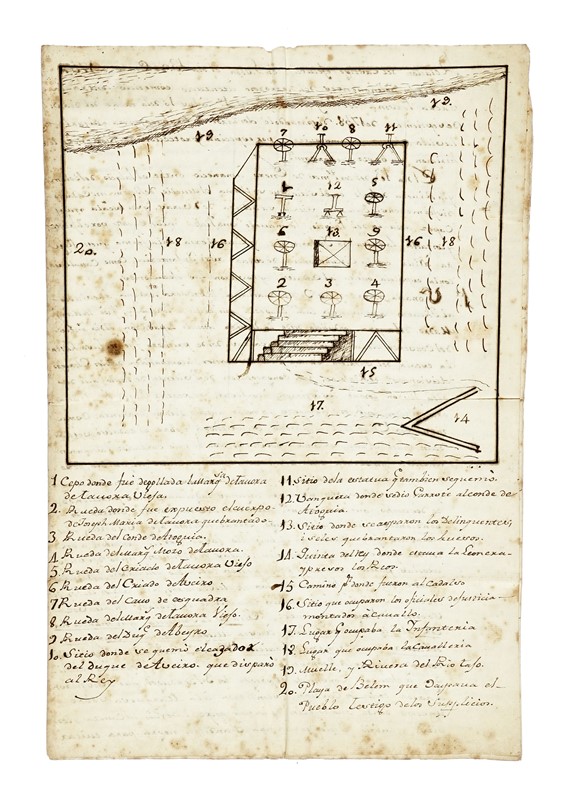 19.
7
10
8
11
19
1
12
5
20.
18
16
6
13.
9
16
18
2
3
4
15
17.
14
1 Cepo donde fué degollada la Marq.ª de tavora
de tavora Vieja.
2. Rueda donde fue expuesto el cuerpo
de Joseph Maria de tavora quebrantado.
3 Rueda del Conde de Atoguia.
4 Rueda del Marq.s Mozo de tavora.
5 Rueda del Criado de tavora Viejo
6 Rueda del Criado de Aveiro.
7 Rueda del Cavo de esquadra
8. Rueda del Marq.s de tavora Viejo.
9 Rueda del Duq.e de Abeyro
10. Sitio donde se quemò el cazador
del duque de Aveiro que disparò
al Rey
11 Sitio de la estatua q tambien se quemò.
12. Vanqueta donde se dio Garrote al conde de
Atoguia.
13. Sitio donde se asparon los Delinquentes,
i se les quebrantaron los huesos.
14. Quinta del Rey donde estava la Leonera
y presos los Reos.
15 Camino p.r donde fueron al Cadalso
16. Sitio que ocuparon los oficiales de Justicia
montados à cavallo.
17. Lugar q ocupaba la Infanteria
18 Lugar que ocupaba la Cavalleria
19. Muelle, y Rivera del Rio tajo.
20. Playa de Belem que ocupava el
Pueblo testigo de los Supplicios.